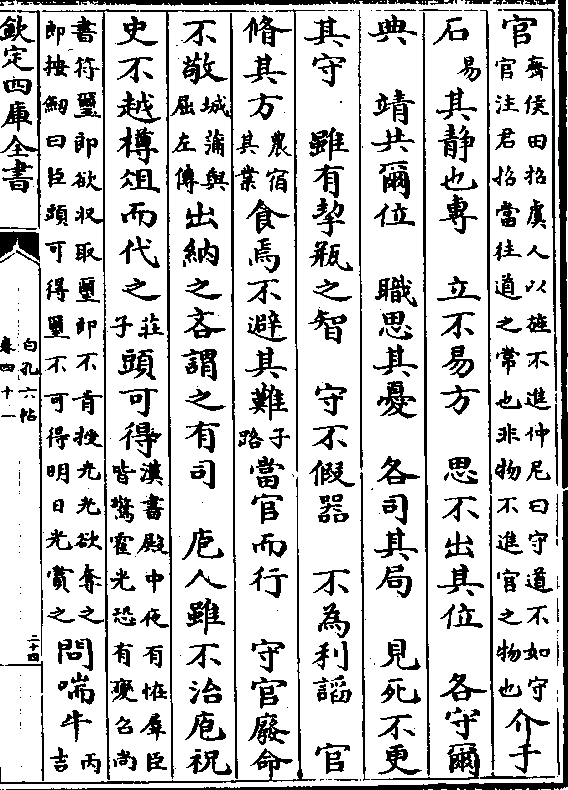 官齊侯田招虞人以旌不進仲尼曰守道不如守官注君招當往道之常也非物不進官之物也介于
石易其静也專　立不易方　思不出其位　各守爾
典　靖共爾位　職思其憂　各司其局　見死不更
其守　雖有挈瓶之智　守不假器　不為利謟　官
脩其方農宿其業食焉不避其難子路當官而行　守官廢命
不敬城蒲與屈左傳出納之吝謂之有司　庖人雖不治庖祝
史不越樽俎而代之莊子頭可得漢書殿中夜有怪羣臣皆驚霍光恐有變召尚
書符璽郎欲收取璽郎不肯授光光欲奪之郎按劒曰臣頭可得璽不可得明日光賞之問喘牛丙吉
欽定四庫全書
白孔六帖
卷四十一
二十四